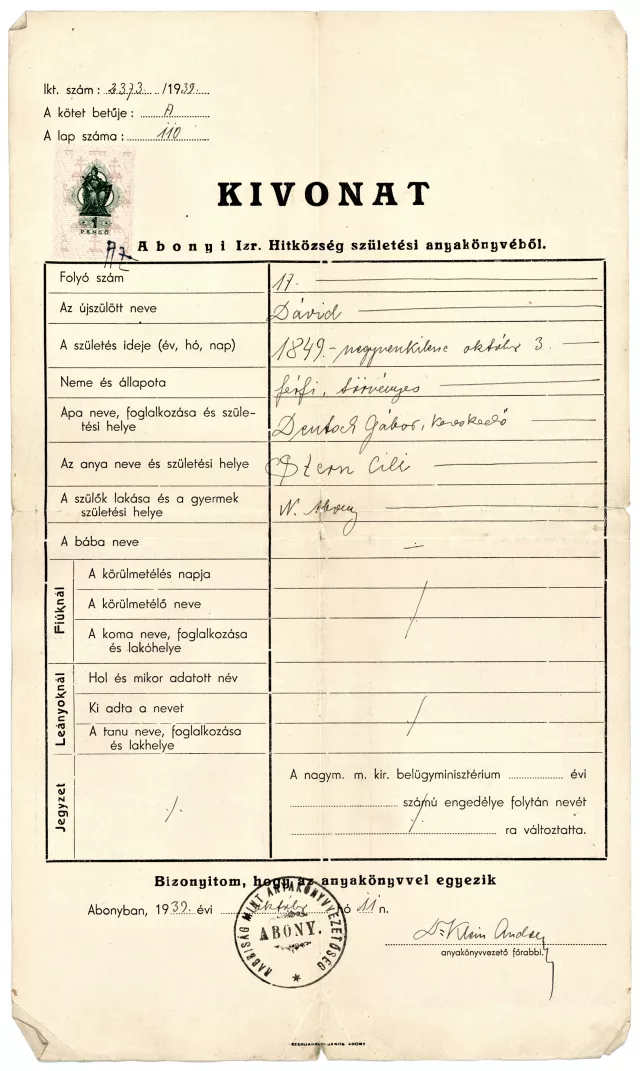 Ikt. szám: 2373 /1939.
A kötet betűje: A
A lap száma: 110
1
PENGŐ
KIVONAT
Abonyi Izr. Hitközség születési anyakönyvéből.
Folyó szám 17.
Az újszülött neve Dávid
A születés ideje (év, hó, nap) 1849. - negyvenkilenc október 3.
Neme és állapota férfi, törvényes
Apa neve, foglalkozása és szüle-
tési helye Deutsch Gábor, kereskedő
Az anya neve és születési helye Stern Cili
A szülők lakása és a gyermek
születési helye N. Abony
A bába neve —
Fiúknál
A körülmetélés napja
A körülmetélő neve
A koma neve, foglalkozása
és lakóhelye
Leányoknál
Hol és mikor adatott név
Ki adta a nevet
A tanu neve, foglalkozása
és lakhelye
Jegyzet
A nagym. m. kir. belügyminisztérium évi
számú engedélye folytán nevét
ra változtatta.
Bizonyitom, hogy az anyakönyvvel egyezik
Abonyban, 1939. évi október hó 11 n.
RABBISÁG MINT ANYAKÖNYVVEZETŐSÉG
ABONY.
Dr Klein Andor
anyakönyvvezető főrabbi.